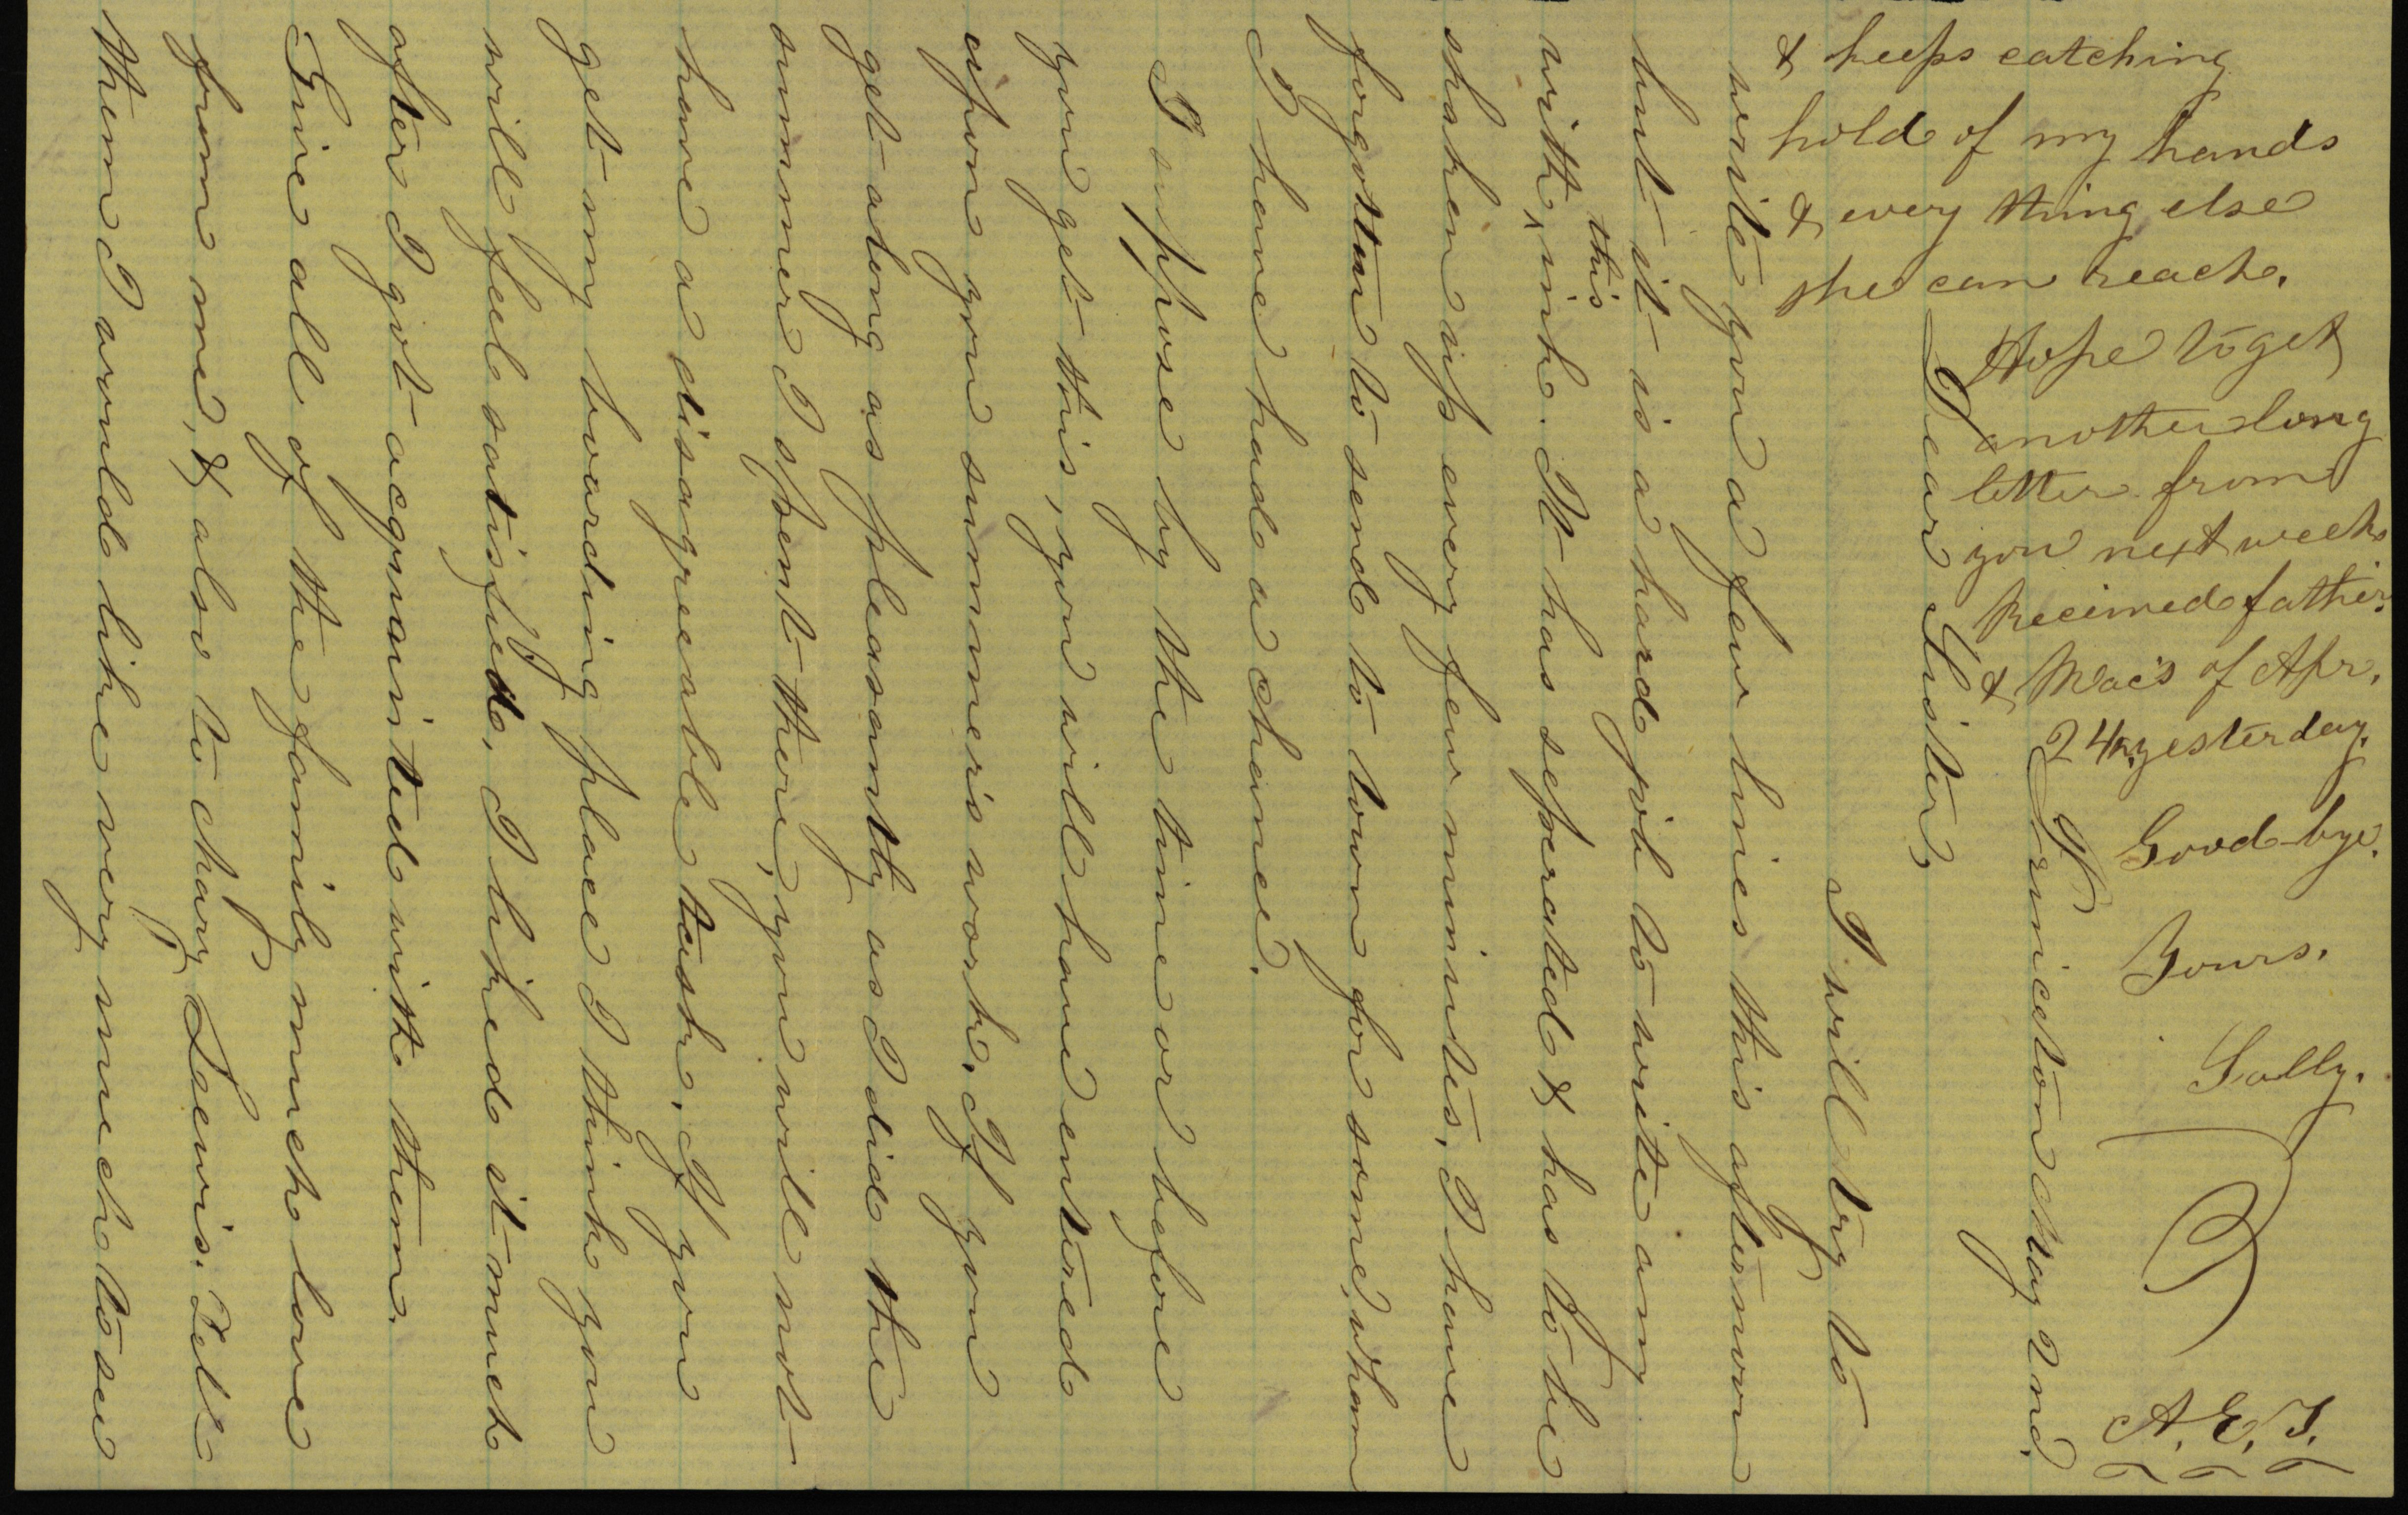 Princeton May 2nd.
Dear Sister,
I will try to
write you a few lines this afternoon
but it is a hard job to write any
this
with ‸ ink. It has seperated & has to be
shaken up every few minutes, I have
forgotten to send to town for some, when
I have had a chance.
I suppose by the time or before
you get this, you will have entered
upon your summer's work. If you
get along as pleasantly as I did the
summer I spent there, you will not
have a disagreeable task. If you
get my boarding place I think you
will feel satisfied, I liked it much
after I got acquainted with them.
Give all of the family much love
from me, & also to Mary Lewis. Tell
them I would like very much to see
& keeps catching
hold of my hands
& every thing else
she can reach.
Hope to get
another long
letter from
you next week
Received father's
& Mac's of Apr.
24th yesterday.
Good-bye.
Yours.
Sally.
A. E. T.